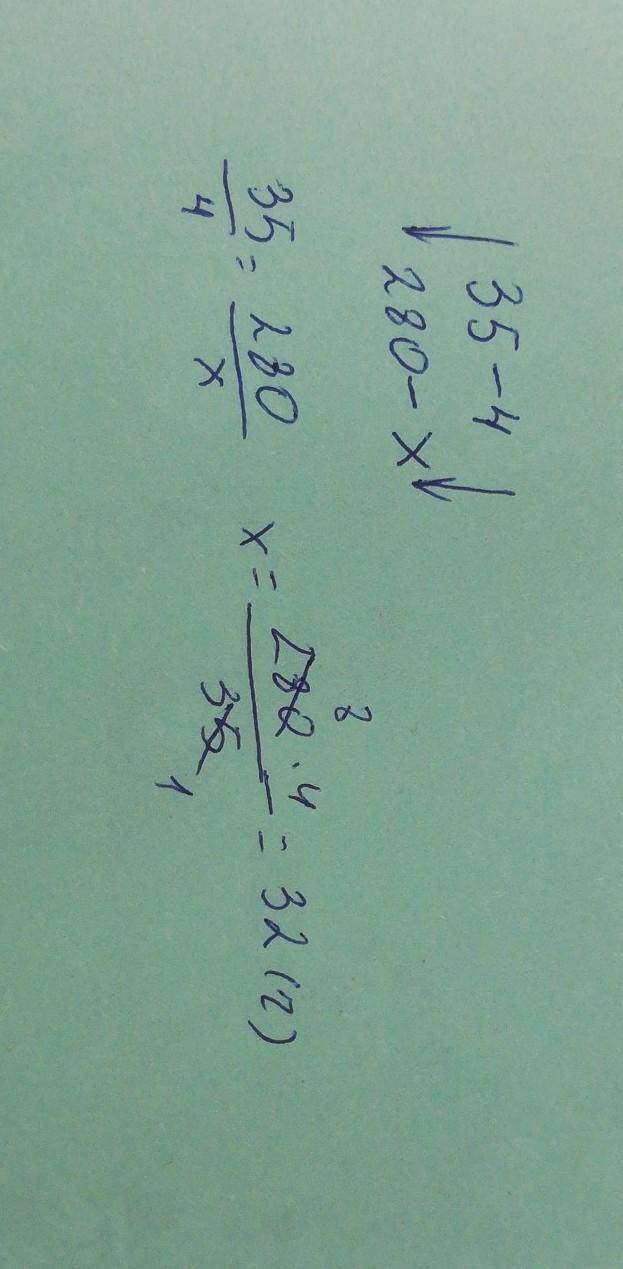 ↓ 35 – 4 ↓
280 – x
35/4 = 280/x   x = 280 · 4 / 35 = 32 (г)
8
1